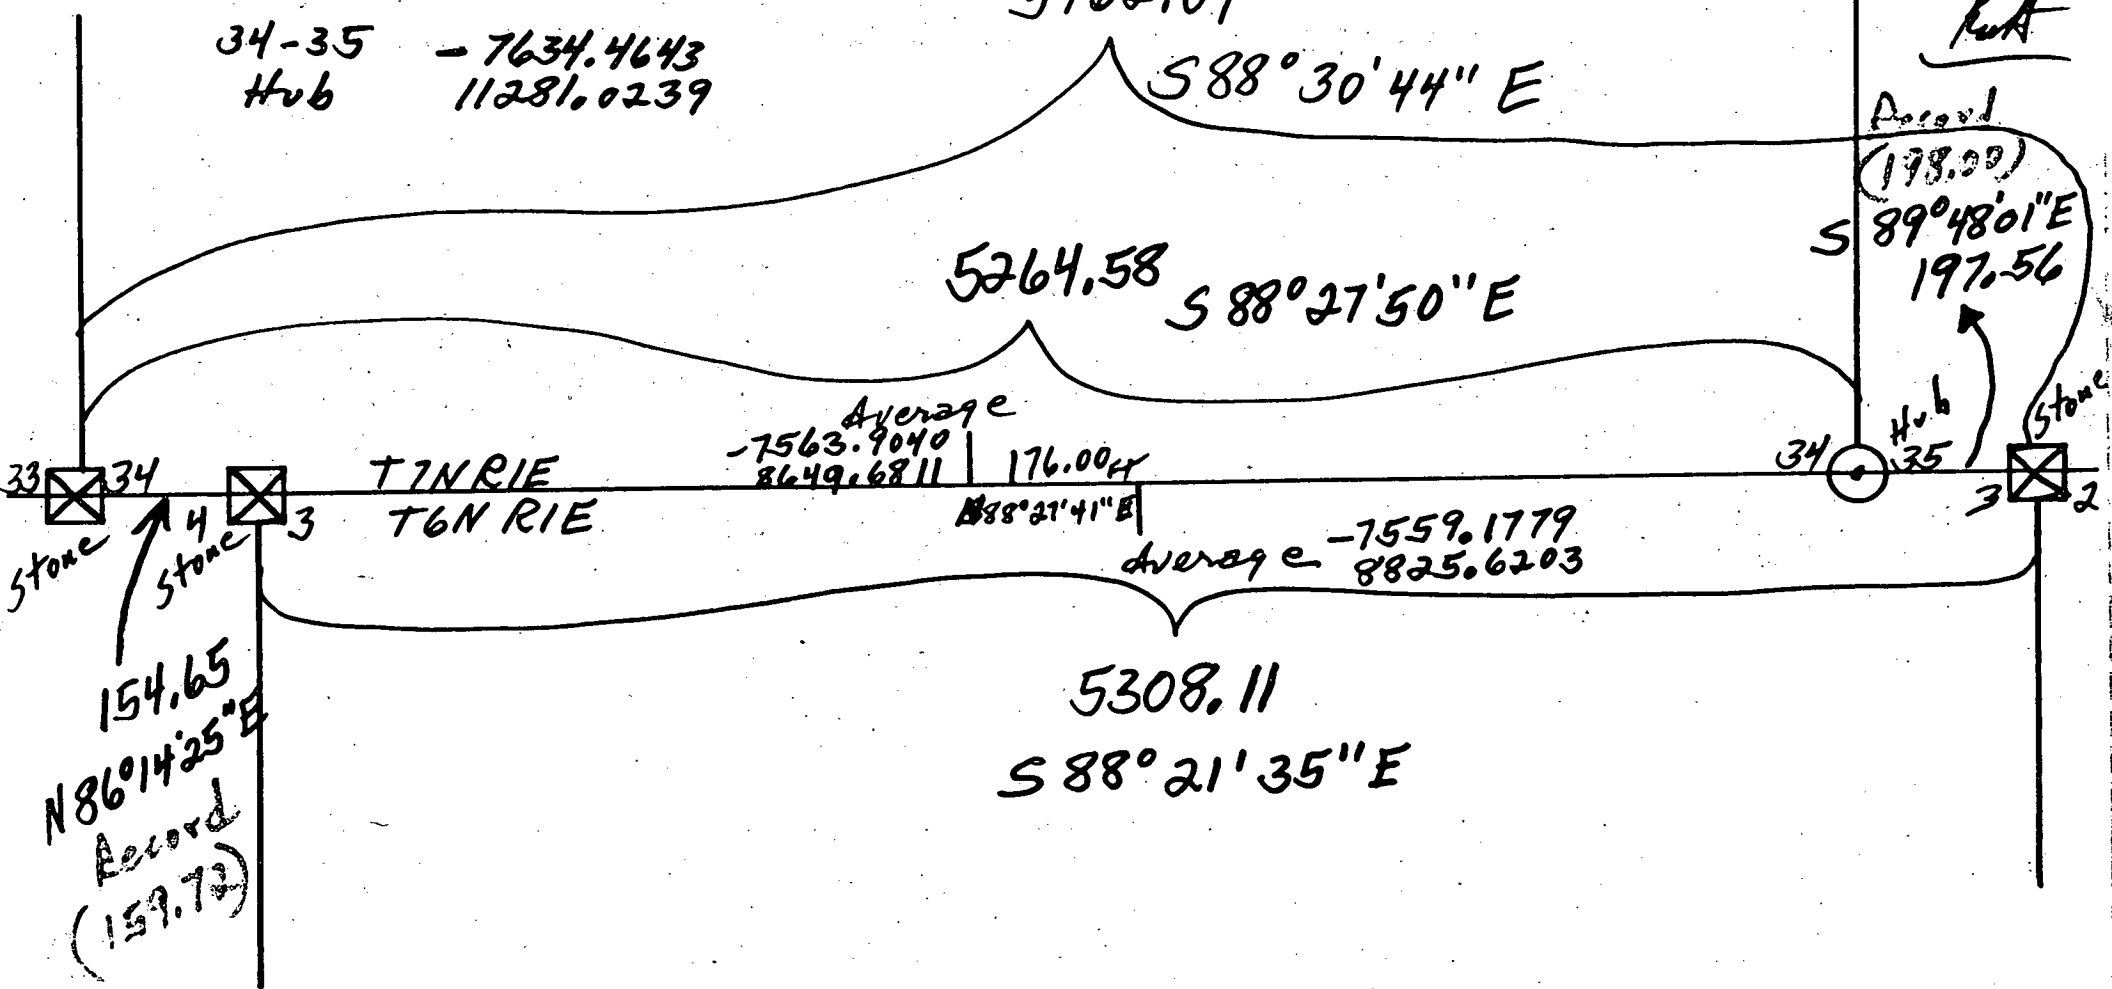 34-35 -7634.4643
Hub 11281.0239
S 88° 30' 44" E
Record
(198.00)
S 89°48'01"E
197.56
5264.58
S 88° 27' 50" E
Average
-7563.9040
8649.6811
176.00 FT
88°27'41"E
33 34
4 3
Stone
Stone
T7N R1E
T6N R1E
34 35
Hub
Stone
3 2
Average -7559.1779
8825.6203
154.65
N86°14'25"E
Record
(159.72)
5308.11
S 88° 21' 35" E